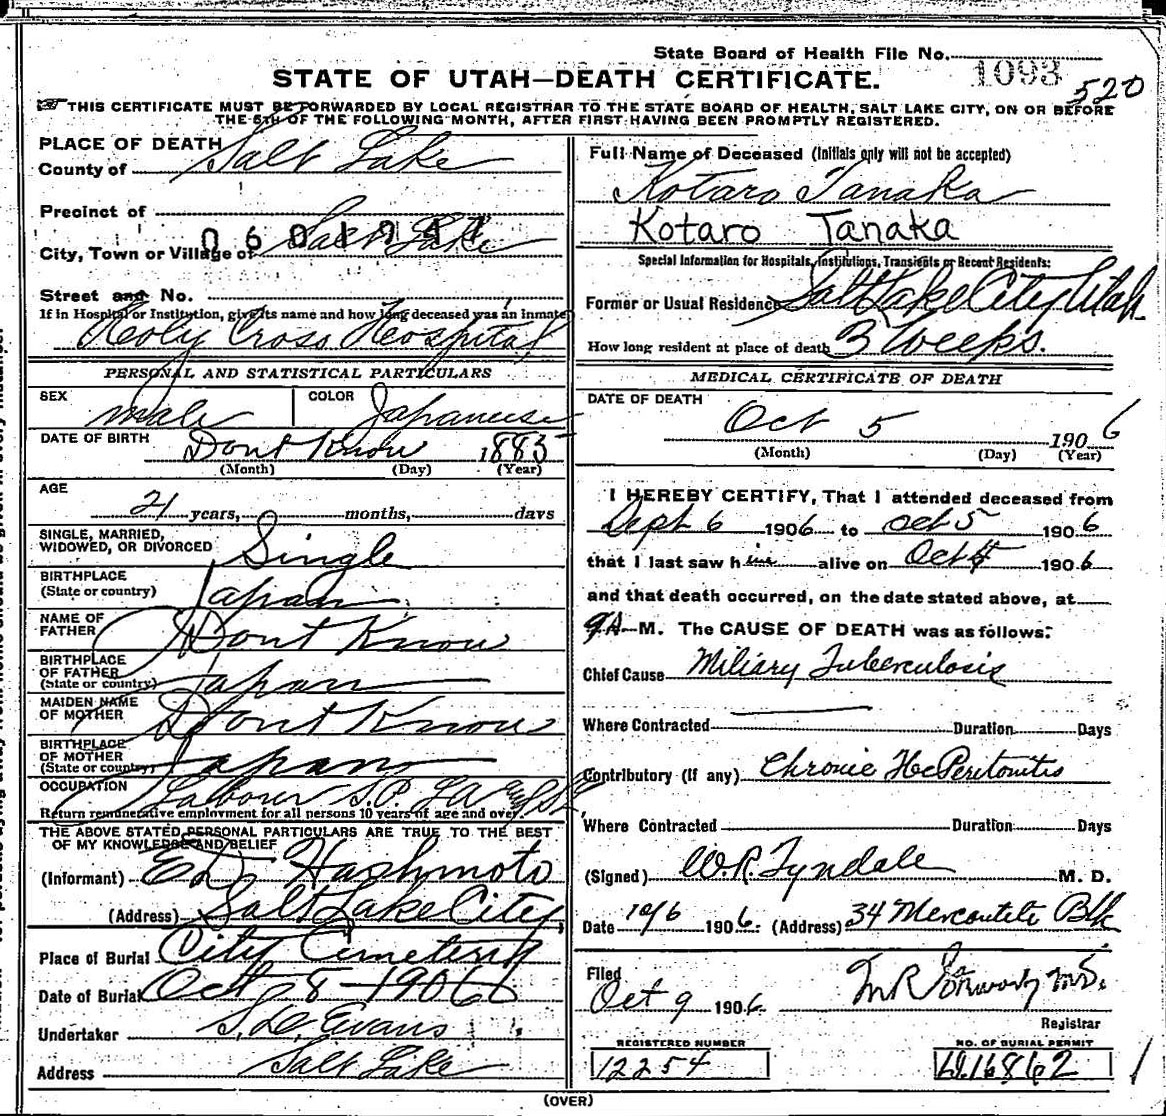 State Board of Health File No. 1093
520
STATE OF UTAH—DEATH CERTIFICATE.
THIS CERTIFICATE MUST BE FORWARDED BY LOCAL REGISTRAR TO THE STATE BOARD OF HEALTH, SALT LAKE CITY, ON OR BEFORE
THE 5TH OF THE FOLLOWING MONTH, AFTER FIRST HAVING BEEN PROMPTLY REGISTERED.
PLACE OF DEATH
County of Salt Lake
Precinct of
City, Town or Village of Salt Lake
Street and No.
If in Hospital or Institution, give its name and how long deceased was an inmate
Holy Cross Hospital
PERSONAL AND STATISTICAL PARTICULARS
SEX male COLOR Japaneese
DATE OF BIRTH Dont Know 1885
(Month) (Day) (Year)
AGE
21 years, months, days
SINGLE, MARRIED,
WIDOWED, OR DIVORCED Single
BIRTHPLACE
(State or country) Japan
NAME OF
FATHER Dont Know
BIRTHPLACE
OF FATHER
(State or country) Japan
MAIDEN NAME
OF MOTHER Dont Know
BIRTHPLACE
OF MOTHER
(State or country) Japan
OCCUPATION Labour S.P. LA
Return remunerative employment for all persons 10 years of age and over.
THE ABOVE STATED PERSONAL PARTICULARS ARE TRUE TO THE BEST
OF MY KNOWLEDGE AND BELIEF
(Informant) ED Hashmoto
(Address) Salt Lake City
Place of Burial City Cemetery
Date of Burial Oct 8 - 1906
Undertaker S. D. Evans
Address Salt Lake
Full Name of Deceased (Initials only will not be accepted)
Kotaro Tanaka
Kotaro Tanaka
Special Information for Hospitals, Institutions, Transients or Recent Residents:
Former or Usual Residence Salt Lake City Utah
How long resident at place of death 3 Weeks.
MEDICAL CERTIFICATE OF DEATH
DATE OF DEATH
Oct 5 1906
(Month) (Day) (Year)
I HEREBY CERTIFY, That I attended deceased from
Sept 6 1906 to Oct 5 1906
that I last saw him alive on Oct 1906
and that death occurred, on the date stated above, at
9 A M. The CAUSE OF DEATH was as follows:
Chief Cause Miliary Tuberculosis
Where Contracted Duration Days
Contributory (If any) Chronic Peritonitis
Where Contracted Duration Days
(Signed) W.R. Tyndale M. D.
Date 10/6 1906. (Address) 34 Mercantile Blk
Filed
Oct 9 1906.
Registrar
REGISTERED NUMBER
12254
NO. OF BURIAL PERMIT
16862
(OVER)